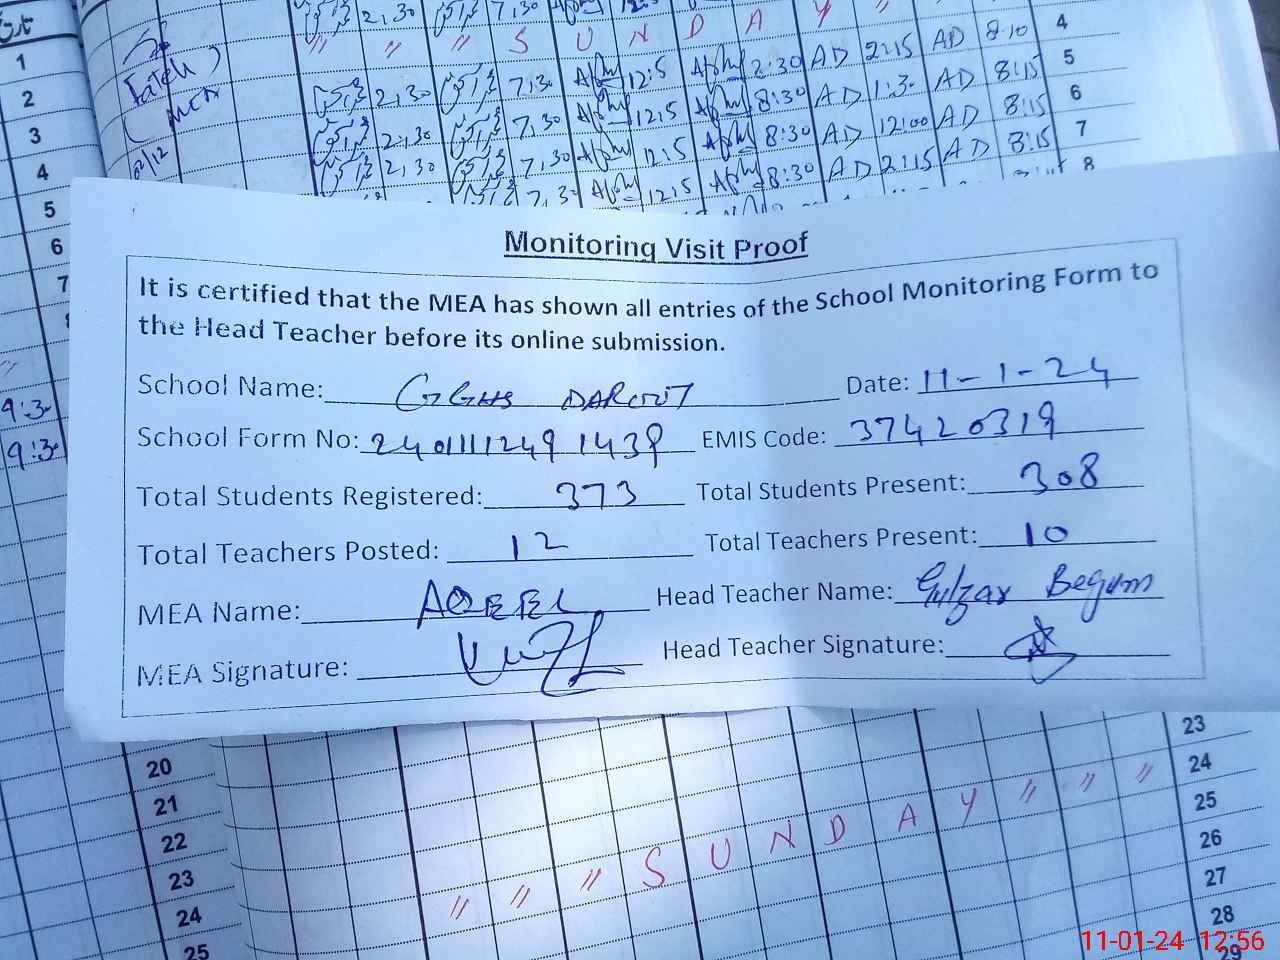 2,30 7,30
" " " S U N D A Y "
1 Fateh 2,30 7,30 12:5 8:30 AD 2:15 AD 8:10 4
2 2,30 7,30 12:5 8:30 AD 1:30 AD 8:15 5
3 2,30 7,30 12:5 8:30 AD 12:00 AD 8:15 6
4 7,30 12:5 8:30 AD 2:15 AD 8:15 7
5 8
6
7
9:30
9:30
Monitoring Visit Proof
It is certified that the MEA has shown all entries of the School Monitoring Form to
the Head Teacher before its online submission.
School Name: GGHS DAROUT Date: 11-1-24
School Form No: 2401111249 1439 EMIS Code: 37420319
Total Students Registered: 373 Total Students Present: 308
Total Teachers Posted: 12 Total Teachers Present: 10
MEA Name: AQEEL Head Teacher Name: Gulzar Begum
MEA Signature: Head Teacher Signature:
20 23
21 24
22 25
23 " " " S U N D A Y " " " 26
24 27
25 28
29
11-01-24 12:56